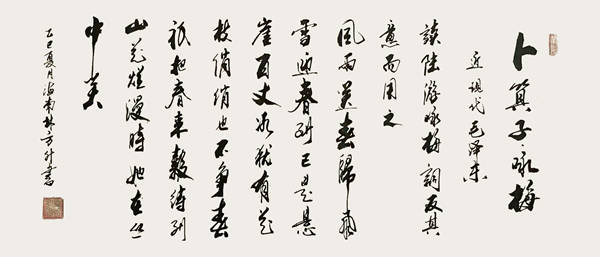 卜算子咏梅
近现代毛泽东
读陆游咏梅词反其
意而用之
風雨送春歸飛
雪迎春到已是懸
崖百丈冰犹有花
枝俏俏也不争春
祇把春来報待到
山花爛漫時她在丛
中笑
乙巳夏月海南林方升書